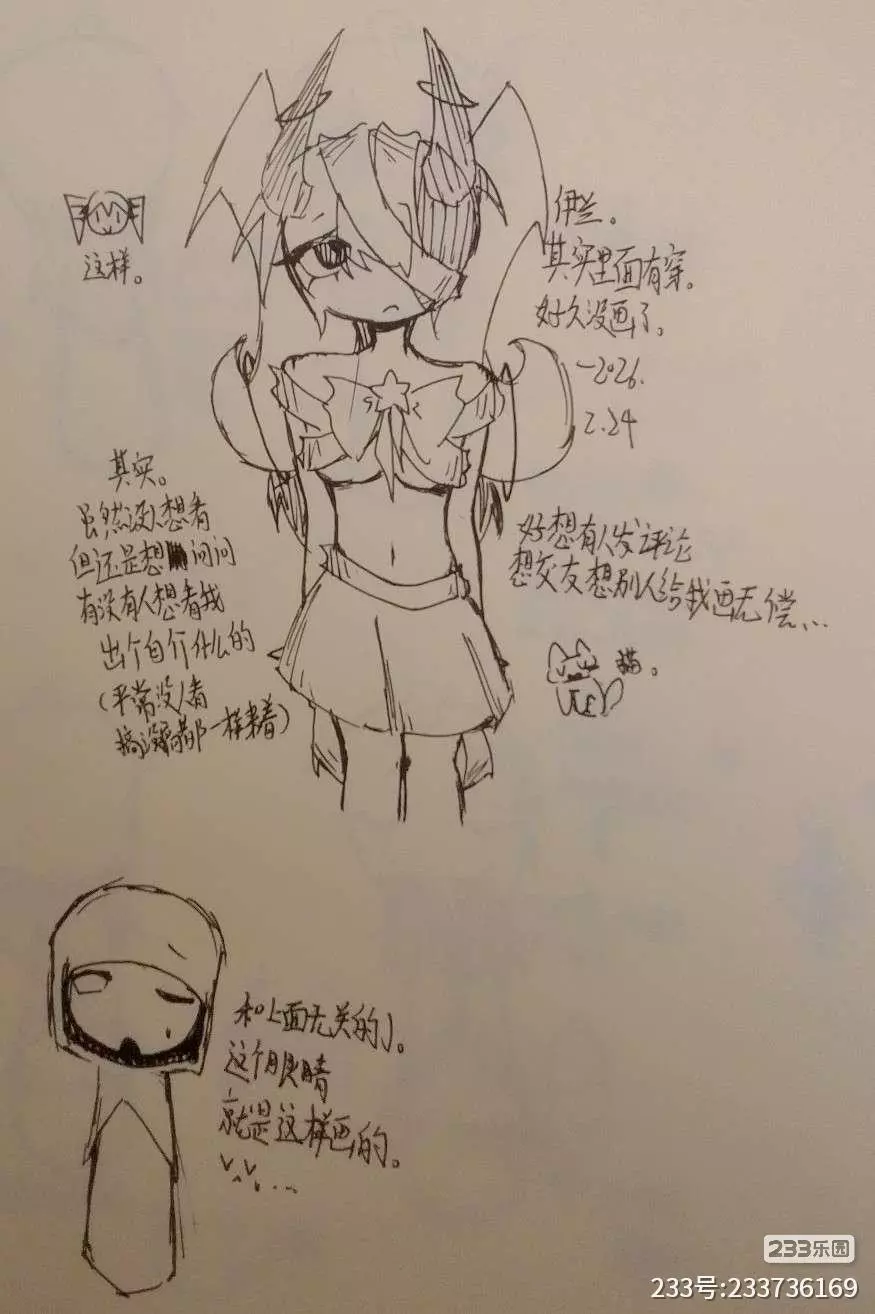 伊兰。
其实里面有穿。
好久没画了。
-2026.
2.24
这样。
其实。
虽然没人想看
但还是想问问
有没有人想看我
出个自介什么的
(平常没人看
搞没搞都一样来着)
好想有人发评论
想交友想别人给我画无偿...
猫。
和上面无关的)。
这个眼睛
就是这样画的。
...
233乐园
233号:233736169